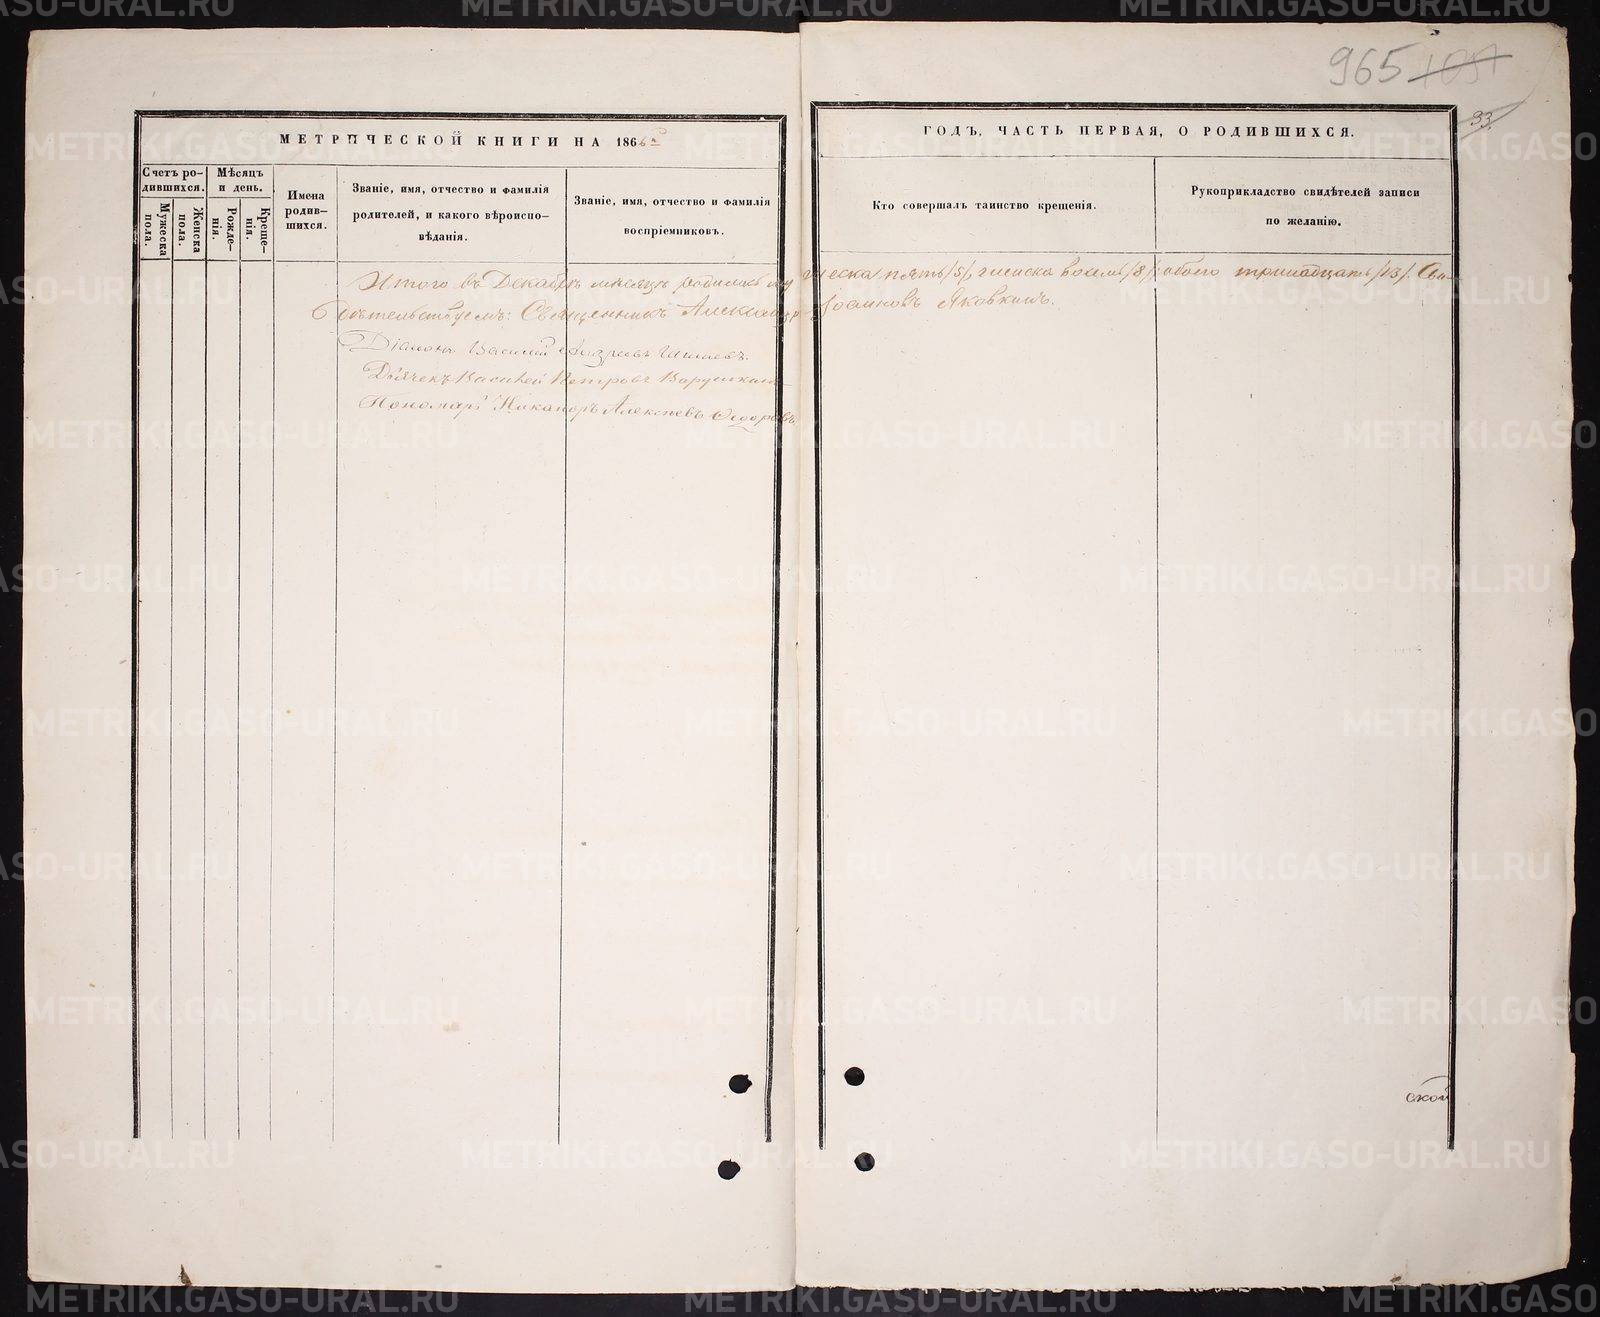 965 1057
33.
МЕТРИЧЕСКОЙ КНИГИ НА 1866й ГОДЪ, ЧАСТЬ ПЕРВАЯ, О РОДИВШИХСЯ.
Счетъ родившихся.
Мужеска пола.
Женска пола.
Мѣсяцъ и день.
Рожденія.
Крещенія.
Имена родившихся.
Званіе, имя, отчество и фамилія родителей, и какого вѣроисповѣданія.
Званіе, имя, отчество и фамилія воспріемниковъ.
Кто совершалъ таинство крещенія.
Рукоприкладство свидѣтелей записи по желанію.
Итого въ Декабрѣ мѣсяцѣ родилось мужеска пять /5/, женска восемь /8/, обоего тринадцать /13/. Сви-
дѣтельствуемъ: Священникъ Александръ Іоанновъ Яковкинъ.
Діаконъ Василій
Дьячекъ Василей Петровъ Варушкинъ
Пономарь Никаноръ Алексѣевъ Ѳедоровъ
ской
METRIKI.GASO-URAL.RU